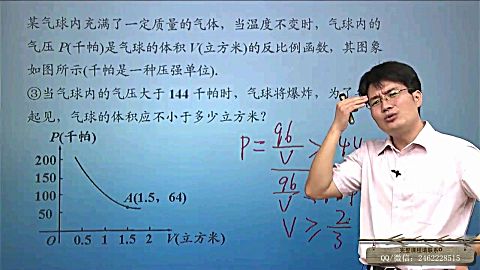 某气球内充满了一定质量的气体，当温度不变时，气球内的
气压 P(千帕)是气球的体积 V(立方米)的反比例函数，其图象
如图所示(千帕是一种压强单位).
③当气球内的气压大于 144 千帕时，气球将爆炸，为了
起见，气球的体积应不小于多少立方米？
P(千帕)
200
150
100
50
A(1.5，64)
O 0.5 1 1.5 2 V(立方米)
P = 96/V >
96/V
V ≥ 2/3
QQ/微信：2462228515